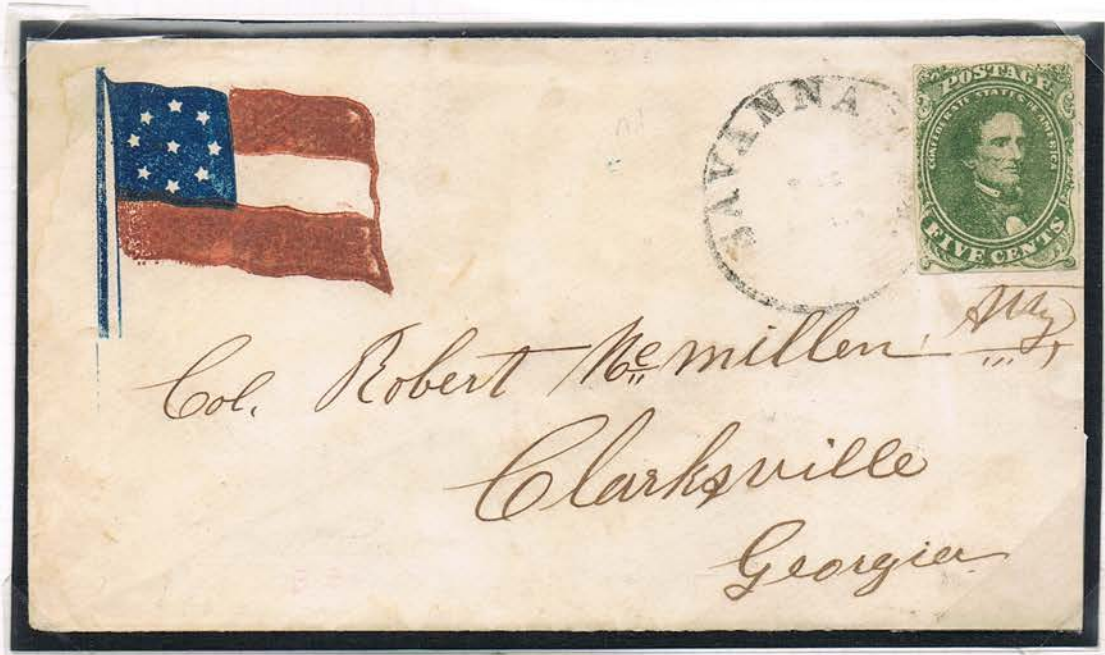 SAVANNA
POSTAGE
CONFEDERATE STATES OF AMERICA
FIVE CENTS
Col. Robert Mc millen Atty,
Clarksville
Georgia